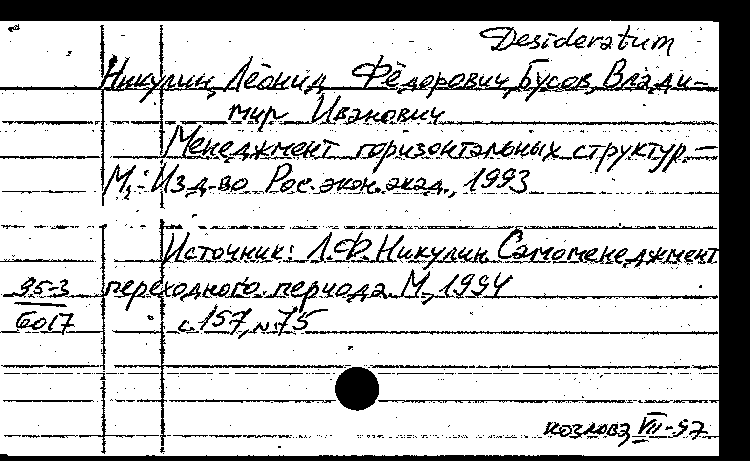 Desideratum
Никулин, Леонид Фёдорович, Бусов, Влади-
мир Иванович
Менеджмент горизонтальных структур. –
М.: Изд-во Рос. экон. акад., 1993
Источник: Л.Ф. Никулин. Самоменеджмент
95-3 переходного периода. М., 1994
6017 с. 157, н. 75
Козлова, VII-97